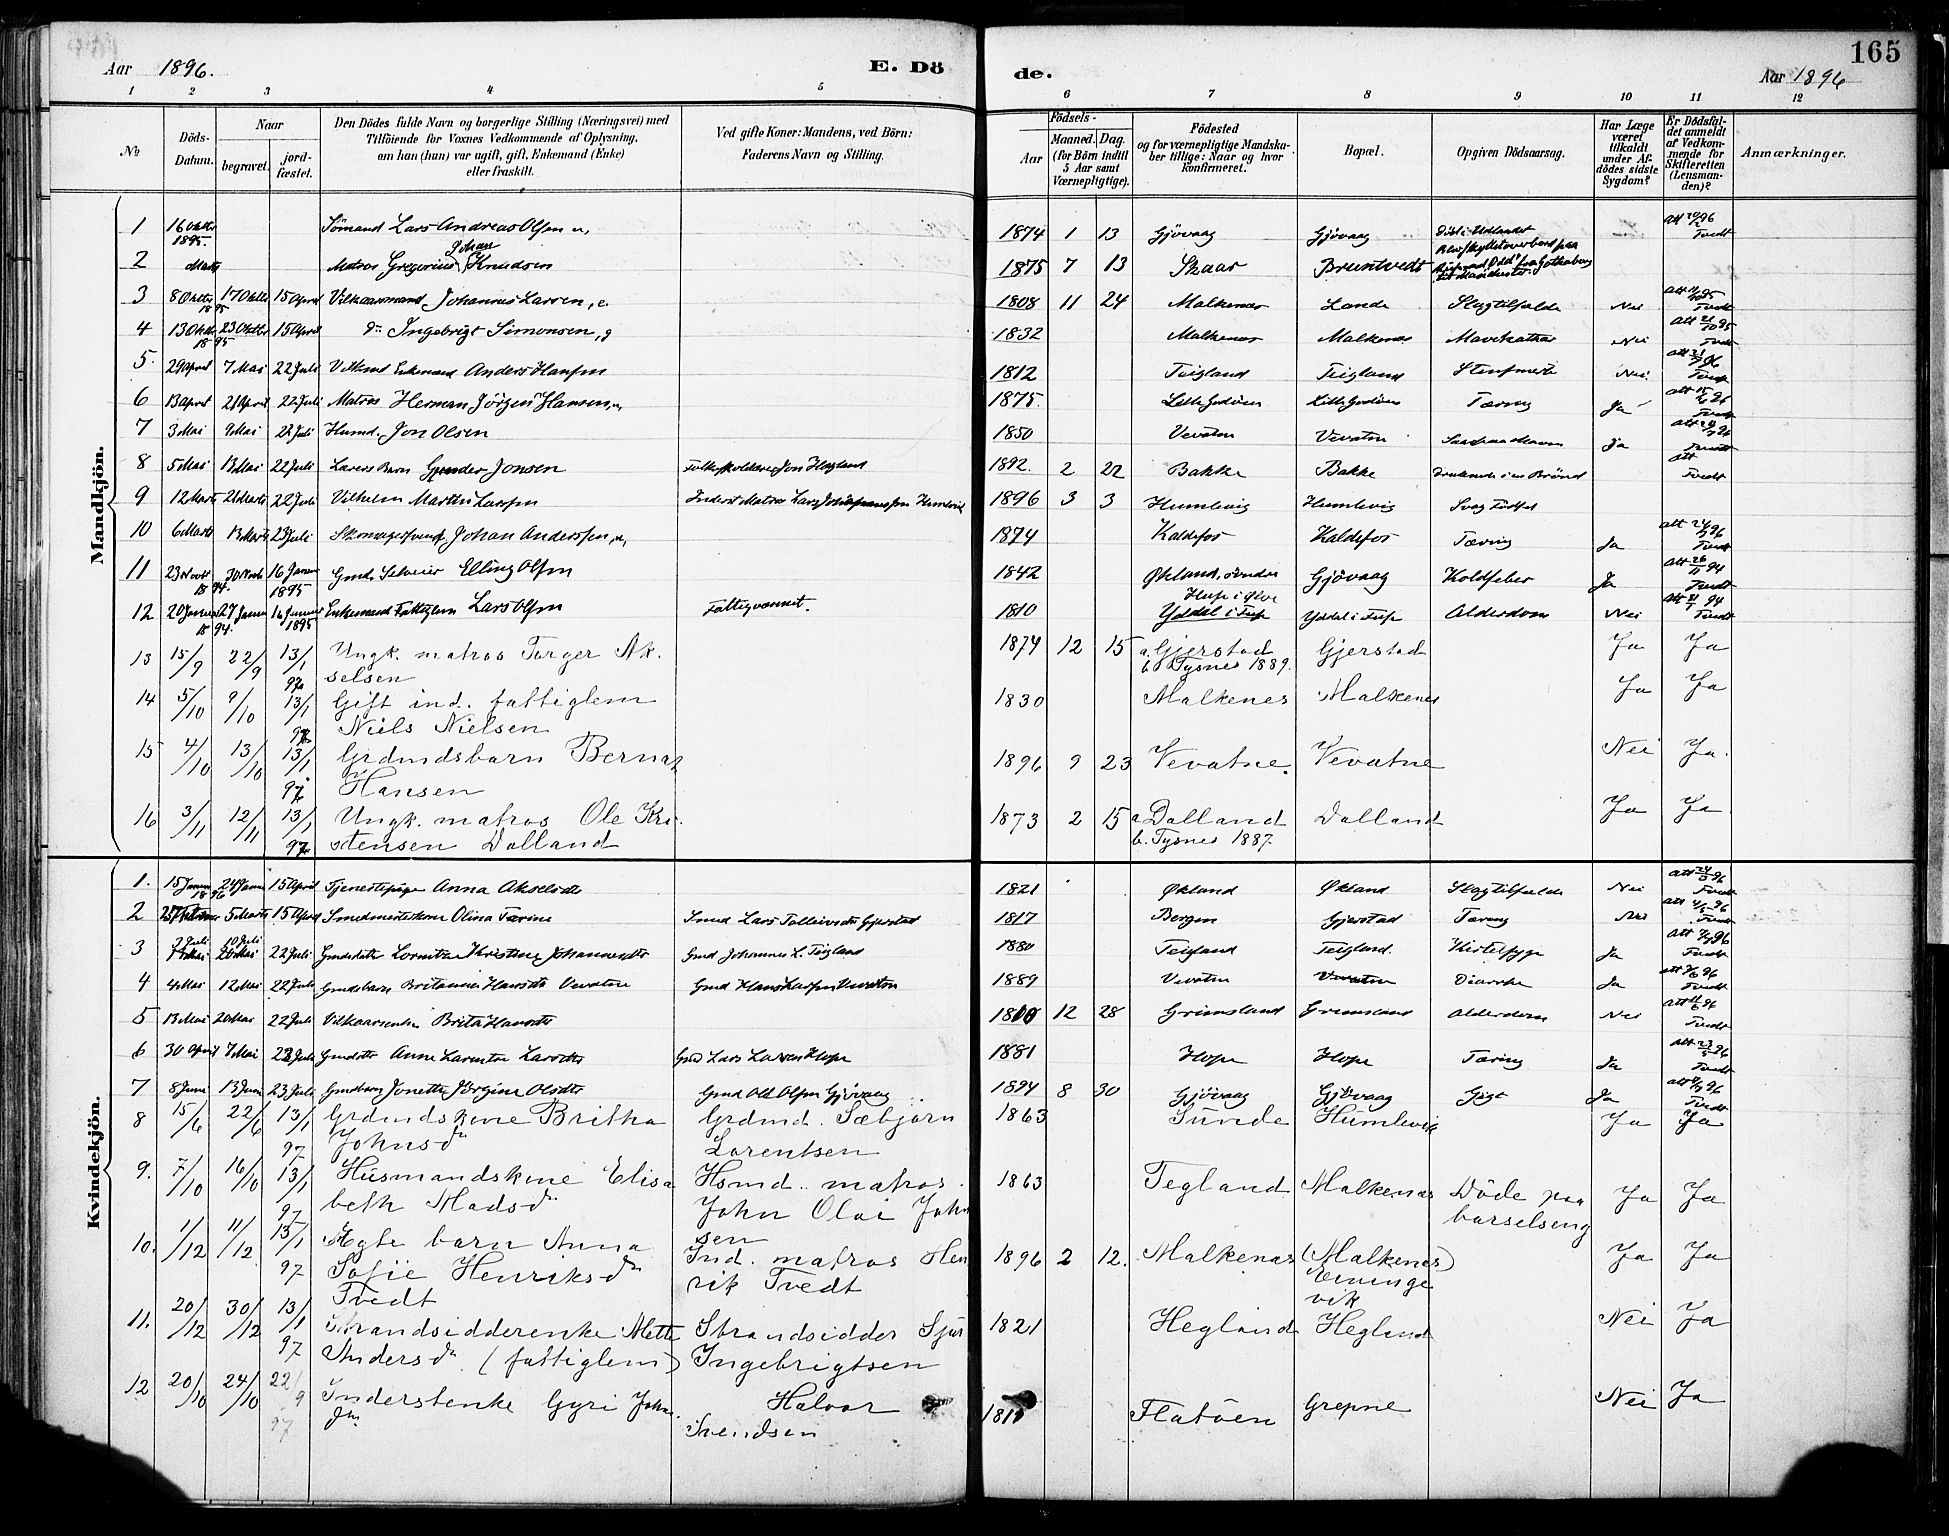 165
Aar 1896. E. Dö de. Aar 1896
1 2 3 4 5 6 7 8 9 10 11 12
No Döds-Datum. Naar begravet. jordfæstet. Den Dödes fulde Navn og borgerlige Stilling (Næringsvei) med Tilföiende for Voxnes Vedkommende af Oplysning, om han (hun) var ugift, gift, Enkemand (Enke) eller fraskilt. Ved gifte Koner: Mandens, ved Börn: Faderens Navn og Stilling. Födsels- Aar Maaned. Dag. (for Börn indtil 5 Aar samt Værnepligtige). Födested og for værnepligtige Mandskaber tillige: Naar og hvor konfirmeret. Bopæl. Opgiven Dödsaarsag. Har Læge været tilkaldt under Afdödes sidste Sygdom? Er Dödsfaldet anmeldt af Vedkommende for Skifteretten (Lensmanden)? Anmærkninger.
Mandkjön.
1 16 Oktbr 1895. Sömand Lars Andreas Olsen u, 1874 1 13 Gjövaag Gjövaag Död i Udlandet Att 20/2 96 Tvedt
2 Marts Matros Gregorius Johan Knudsen 1875 7 13 Skaar Bruntvedt
3 8 Oktbr 1895 17 Oktbr 15 April Vilkaarsmand Johannes Larsen, e. 1808 11 24 Malkenes Lande Slagtilfælde Nei Tvedt
4 13 Oktbr 1895 23 Oktbr 15 April do Ingebrigt Simonsen, g 1832 Malkenes Malkenes Mavekatar Nei Att 21/10 95 Tvedt
5. 29 April 7 Mai 22 Juli Enkemand Anders Hansen 1812 Teigland Teigland Nei. Tvedt
6 13 April 21 April 22 Juli Matros Herman Jörgen Hansen, u, 1875. Lille Godöen Lille Godöen Tæring Ja Tvedt
7 3 Mai 9 Mai 22 Juli Husmd. Jon Olsen 1850 Vevatne Vevatne Ja Tvedt
8 5 Mai 13 Mai 22 Juli Lærers Barn Gunder Jonsen Jon Hegland 1892. 2 22 Bakke Bakke Druknede i en Brönd att Tvedt
9 12 Marts 21 Marts 22 Juli Vilhelm Martin Larsen Inderst Matros Lars 1896 3 3 Humlevig Humlevig Svag Födsel
10 6 Marts 13 Marts 23 Juli Skomagersvend Johan Anderssen, u, 1874 Kaldefos Kaldefos Tæring Ja Tvedt
11 23 Novbr 1894. 30 Novb 16 Januar 1895 Gmd. Selveier Elling Olsen 1842 Økland, Gjövaag Koldfeber Ja Tvedt
12 20 Januar 1894. 27 Januar 16 Januar 1895 Enkemand Fattiglem Lars Olsen Fattigvæsenet. 1810 Yddal i Fuse Yddal i Fuse Alderdom Nei Tvedt
13 15/9 22/9 13/1 97 Ungk. matros Torger Ak- 1874 12 15 a, Gjerstad Gjerstad Ja Ja
selsen b. Tysnes 1889.
14 5/10 9/10 13/1 97 Gift ind. fattiglem 1830 Malkenes Malkenes Ja Ja
Niels Nielsen
15 4/10 13/10 13/1 97 Grdmdsbarn Bernat 1896 9 23 Vevatne. Vevatne Nei Ja.
Hansen
16 3/11 12/11 13/1 97 Ungk. matros Ole Kri- 1873 2 15 a Dalland Dalland Ja Ja
stensen Dalland b. Tysnes 1887.
Kvindekjön.
1. 15 Januar 1896 24 Januar 15 April Tjenestepige Anna Akselsdtr 1821 Økland Økland Slagtilfælde Nei Tvedt
2 5 Marts 15 April Smedmesterkone Olina Tærine Smed Lars Tolleivsen Gjerstad 1817 Bergen Gjerstad Tæring Nei Tvedt
3 2 Juli 10 Juli 22 Juli Gmdsdatter Lorentze Kristine Johannesdtr Gmd Johannes L. Teigland 1880 Teigland Teigland. Kirtelsyge Ja Tvedt
4 4 Mai 12 Mai 22 Juli Gmdsbarn Britannia Hansdtr Vevatne Gmd Hans Larsen Vevatne 1889 Vevatne Vevatne Diarrhe Ja Tvedt
5 13 Mai 20 Mai 22 Juli Vilkaarsenke Brita Hansdtr 1810 12 28 Grimsland Grimsland Alderdom Nei Tvedt
6 30 April 7 Mai 22 Juli Gmdsdtr Anne Larentze Larsdtr Gmd Lars Larsen Hope 1881 Hope Hope Tæring Ja Att 23/5 96 Tvedt
7 8 Juni 13 Juni 23 Juli Gmdbarn Jonette Jörgine Olsdtr Gmd Ole Olsen Gjövaag 1894 8 30 Gjövaag Gjövaag Gigt Ja Tvedt
8 15/6 22/6 13/1 97 Grdmdskone Britha Grdmd. Sæbjörn 1863 Sunde Humlevik Ja Ja
Johnsdr Lorentsen
9. 7/10 16/10 13/1 97 Husmandskone Elisa- Hsmd. matros 1863 Tegland Malkenes Döde paa Ja Ja
beth Madsdr John Olai John- barselseng
sen
10. 1/12 11/12 13/1 97 Ægte barn Anna Ind. matros Hen- 1896 2 12. Malkenes (Malkenes) Ja Ja
Sofie Henriksdr rik Tvedt
Tvedt
11. 20/12 30/12 13/1 97 Strandsidderenke Mette Strandsidder Sjur 1821 Hegland Hegland Nei Ja
Andersdr (fattiglem) Ingebrigtsen
12 20/10 24/10 22/9 97 Inderstenke Gyri John- Halvor Flatöen Grepne Nei Ja
Svendsen